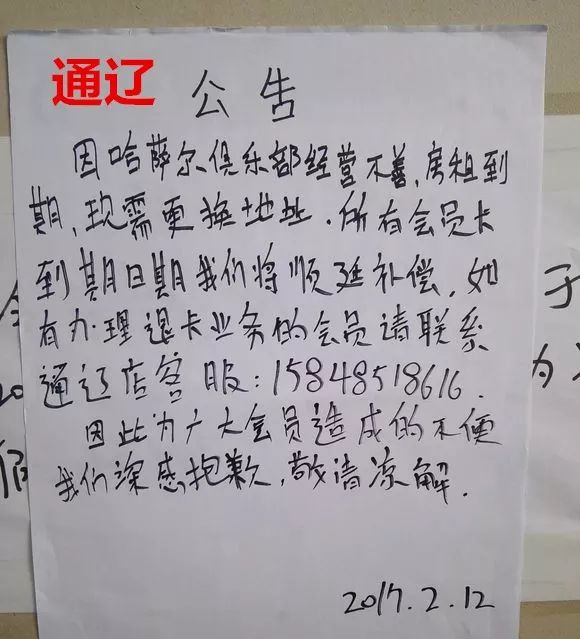 通辽
公告
因哈萨尔俱乐部经营不善,房租到
期,现需更换地址.所有会员卡
到期日期我们将顺延补偿,如
有办理退卡业务的会员请联系
通辽店客服:15848518616.
因此为广大会员造成的不便
我们深感抱歉,敬请凉解.
2017.2.12
于
为
20